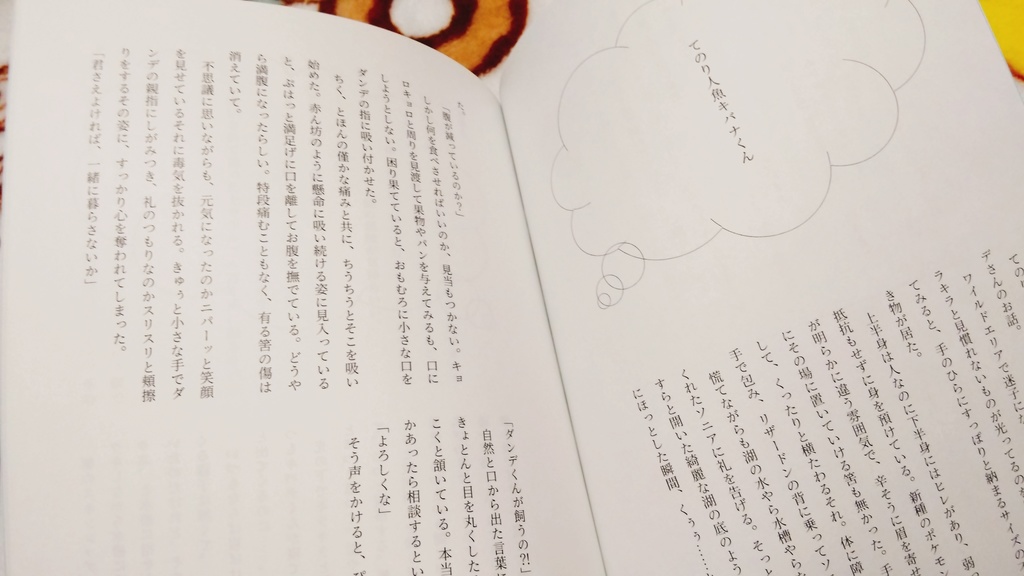 てのり人魚キバナくん
てのり
デさんのお話。
ワイルドエリアで迷子にな
ラキラと見慣れないものが光ってるのを
てみると、手のひらにすっぽりと納まるサイズの
き物が居た。
上半身は人なのに下半身にはヒレがあり、弱っ
抵抗もせずに身を預けている。新種のポケモン
が明らかに違う雰囲気で、辛そうに眉を寄せ
にその場に置いていける筈も無かった。手
して、くったりと横たわるそれ。体に障
手で包み、リザードンの背に乗ってソ
慌てながらも湖の水やら水槽やら
くれたソニアに礼を告げる。そっと
すらと開いた綺麗な湖の底のよう
にほっとした瞬間、くぅぅ……
た。
「腹が減っているのか？」
しかし何を食べさせればいいのか、見当もつかない。キョ
ロキョロと周りを見渡して果物やパンを与えてみるも、口に
しようとしない。困り果てていると、おもむろに小さな口を
ダンデの指に吸い付かせた。
ちく、とほんの僅かな痛みと共に、ちうちうとそこを吸い
始めた。赤ん坊のように懸命に吸い続ける姿に見入っている
と、ぷはっと満足げに口を離してお腹を撫でている。どうや
ら満腹になったらしい。特段痛むこともなく、有る筈の傷は
消えていて。
不思議に思いながらも、元気になったのかニパーッと笑顔
を見せているそれに毒気を抜かれる。きゅぅと小さな手でダ
ンデの親指にしがみつき、礼のつもりなのかスリスリと頬擦
りをするその姿に、すっかり心を奪われてしまった。
「君さえよければ、一緒に暮らさないか」
「ダンデくんが飼うの？！」
自然と口から出た言葉に
きょとんと目を丸くした
こくと頷いている。本当
かあったら相談するとい
「よろしくな」
そう声をかけると、ぴ